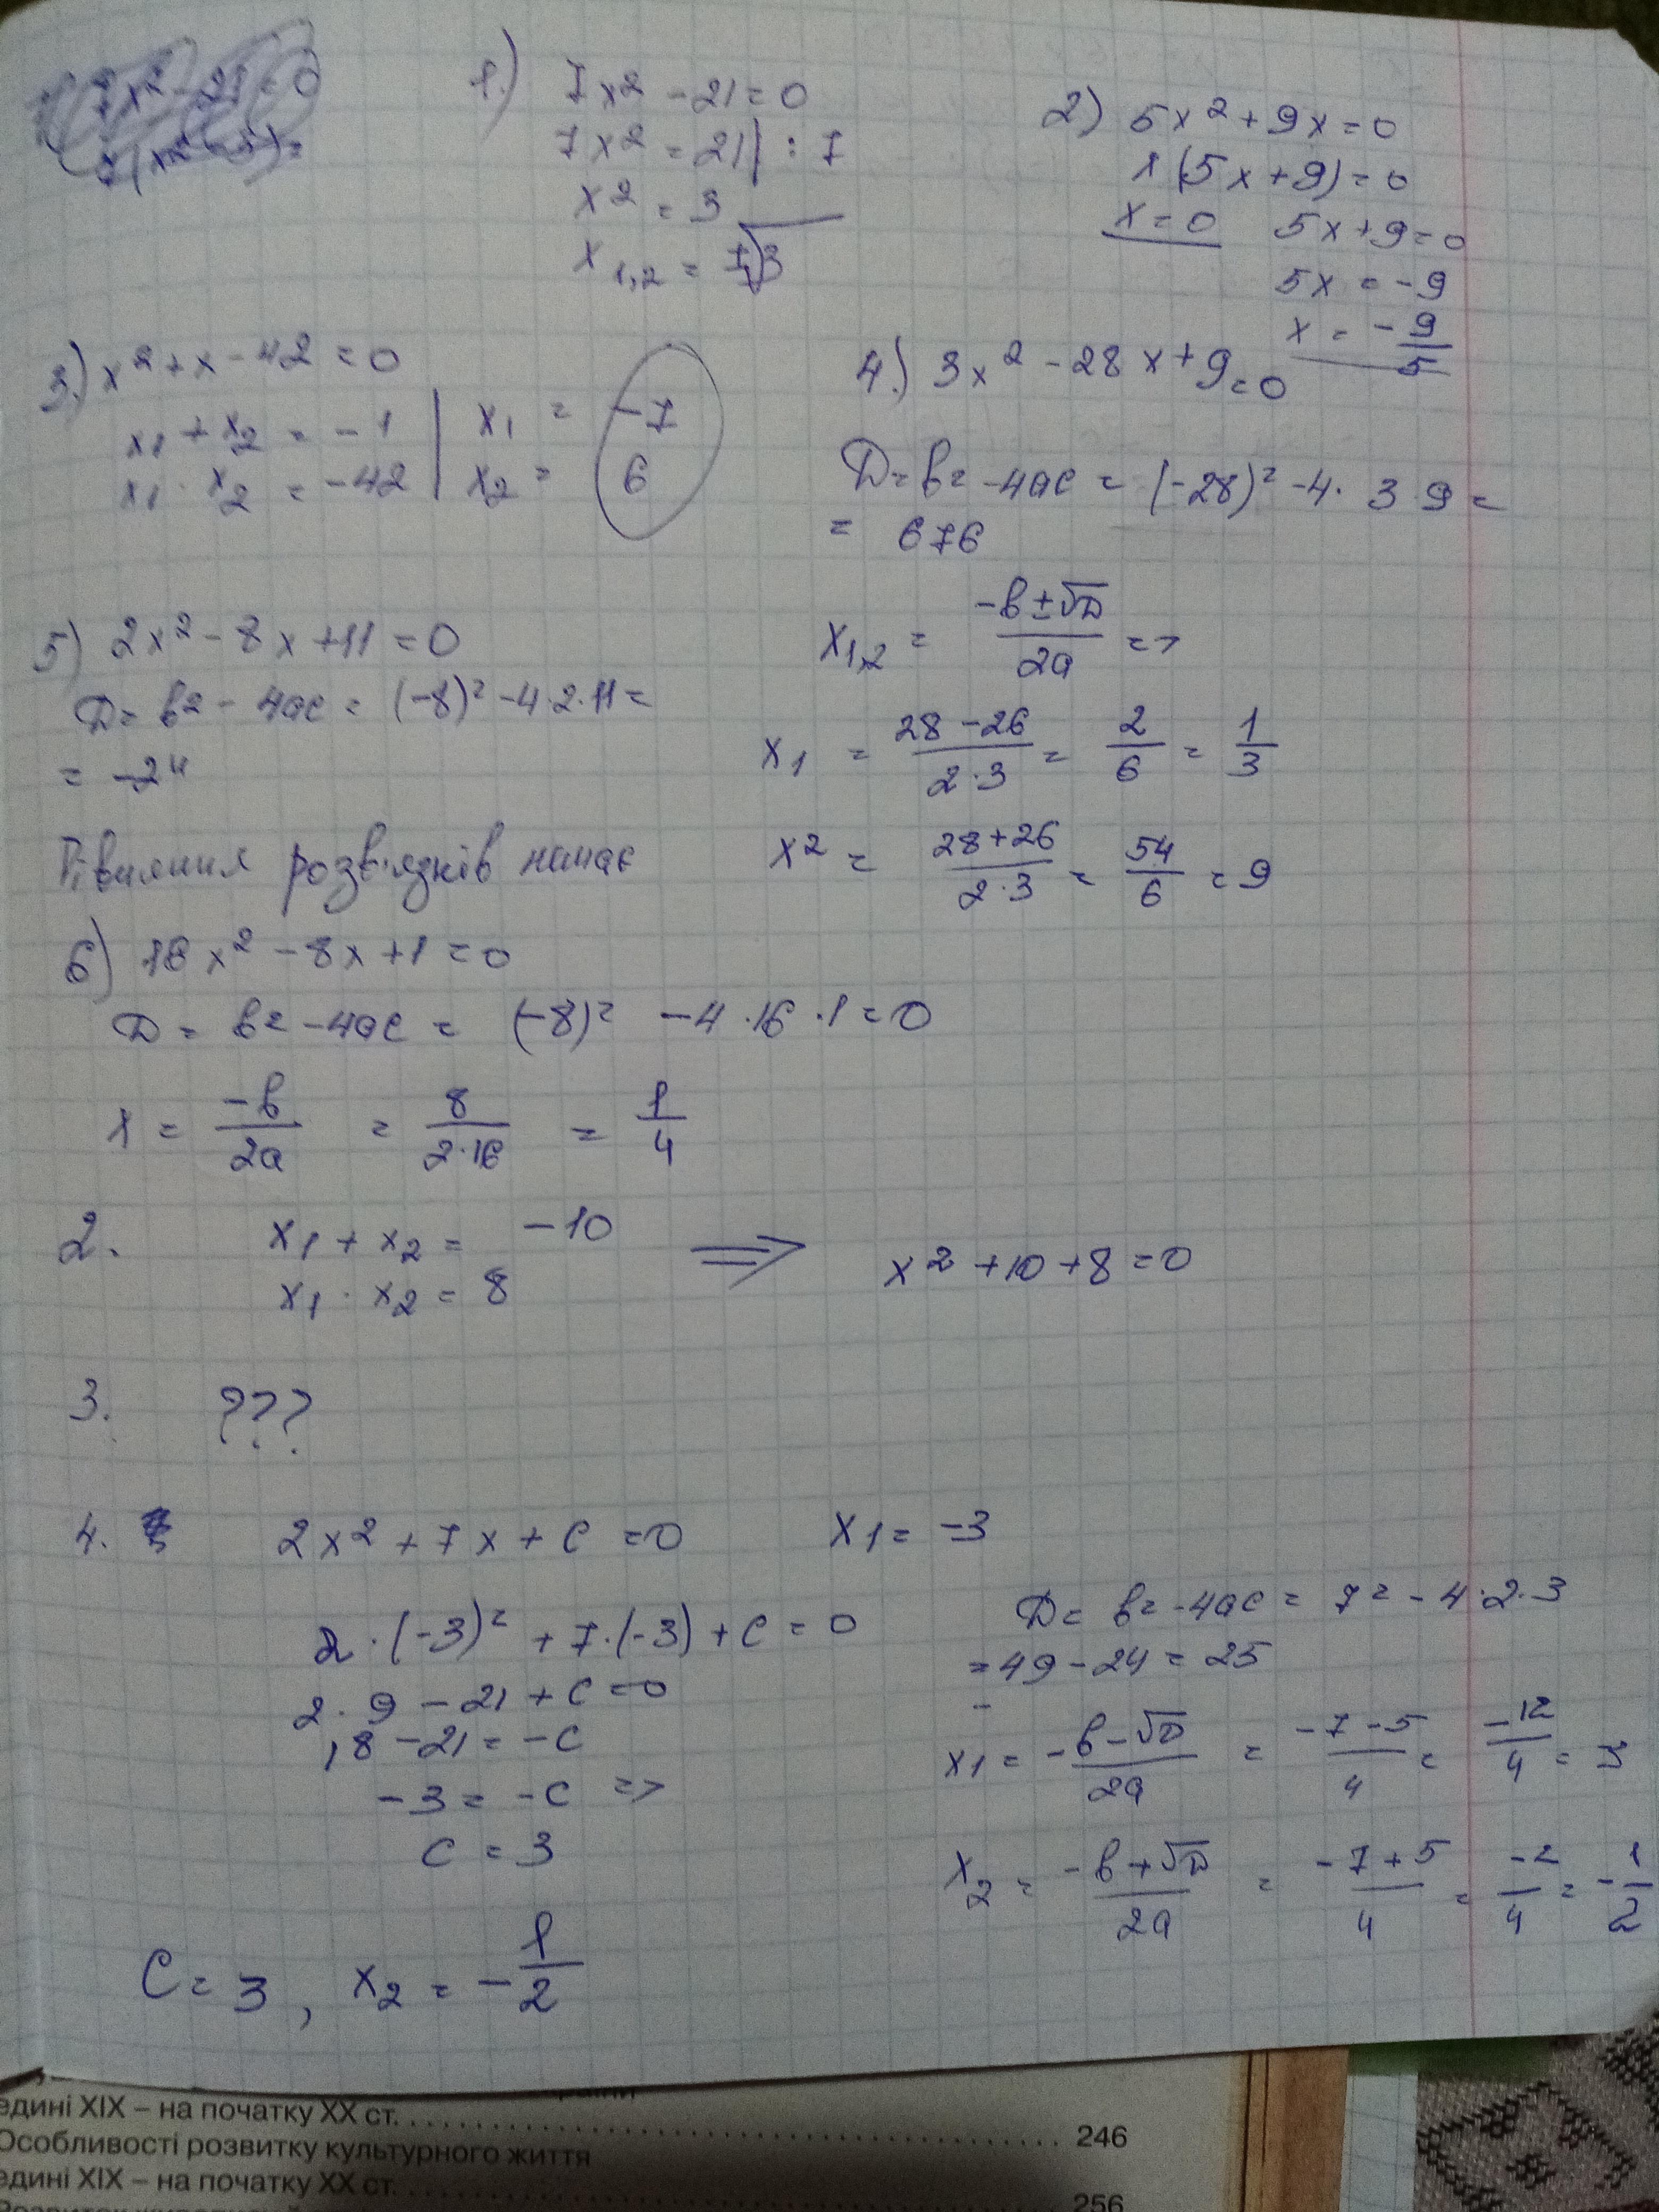 1.) 7x² - 21 = 0
7x² = 21 | : 7
x² = 3
x₁,₂ = ±√3
2) 5x² + 9x = 0
x(5x + 9) = 0
x = 0 5x + 9 = 0
5x = -9
x = -9/5
3.) x² + x - 42 = 0
x₁ + x₂ = -1 | x₁ = -7
x₁ · x₂ = -42 | x₂ = 6
4.) 3x² - 28x + 9 = 0
D = b² - 4ac = (-28)² - 4 · 3 · 9 =
= 676
x₁,₂ = (-b ± √D)/2a =>
x₁ = (28 - 26)/(2·3) = 2/6 = 1/3
x2 = (28 + 26)/(2·3) = 54/6 = 9
5) 2x² - 8x + 11 = 0
D = b² - 4ac = (-8)² - 4·2·11 =
= -24
Рівняння розв'язків немає
6) 16x² - 8x + 1 = 0
D = b² - 4ac = (-8)² - 4 · 16 · 1 = 0
x = -b/2a = 8/(2·16) = 1/4
2. x₁ + x₂ = -10
x₁ · x₂ = 8 ⟹ x² + 10 + 8 = 0
3. ???
4. 2x² + 7x + c = 0 x₁ = -3
2 · (-3)² + 7·(-3) + c = 0
2 · 9 - 21 + c = 0
18 - 21 = -c
-3 = -c =>
c = 3
D = b² - 4ac = 7² - 4·2·3
= 49 - 24 = 25
x₁ = (-b - √D)/2a = (-7 - 5)/4 = -12/4 = 3
x₂ = (-b + √D)/2a = (-7 + 5)/4 = -2/4 = -1/2
C = 3, x₂ = -1/2
едині XIX – на початку XX ст. 246
Особливості розвитку культурного життя
едині XIX – на початку XX ст. 256